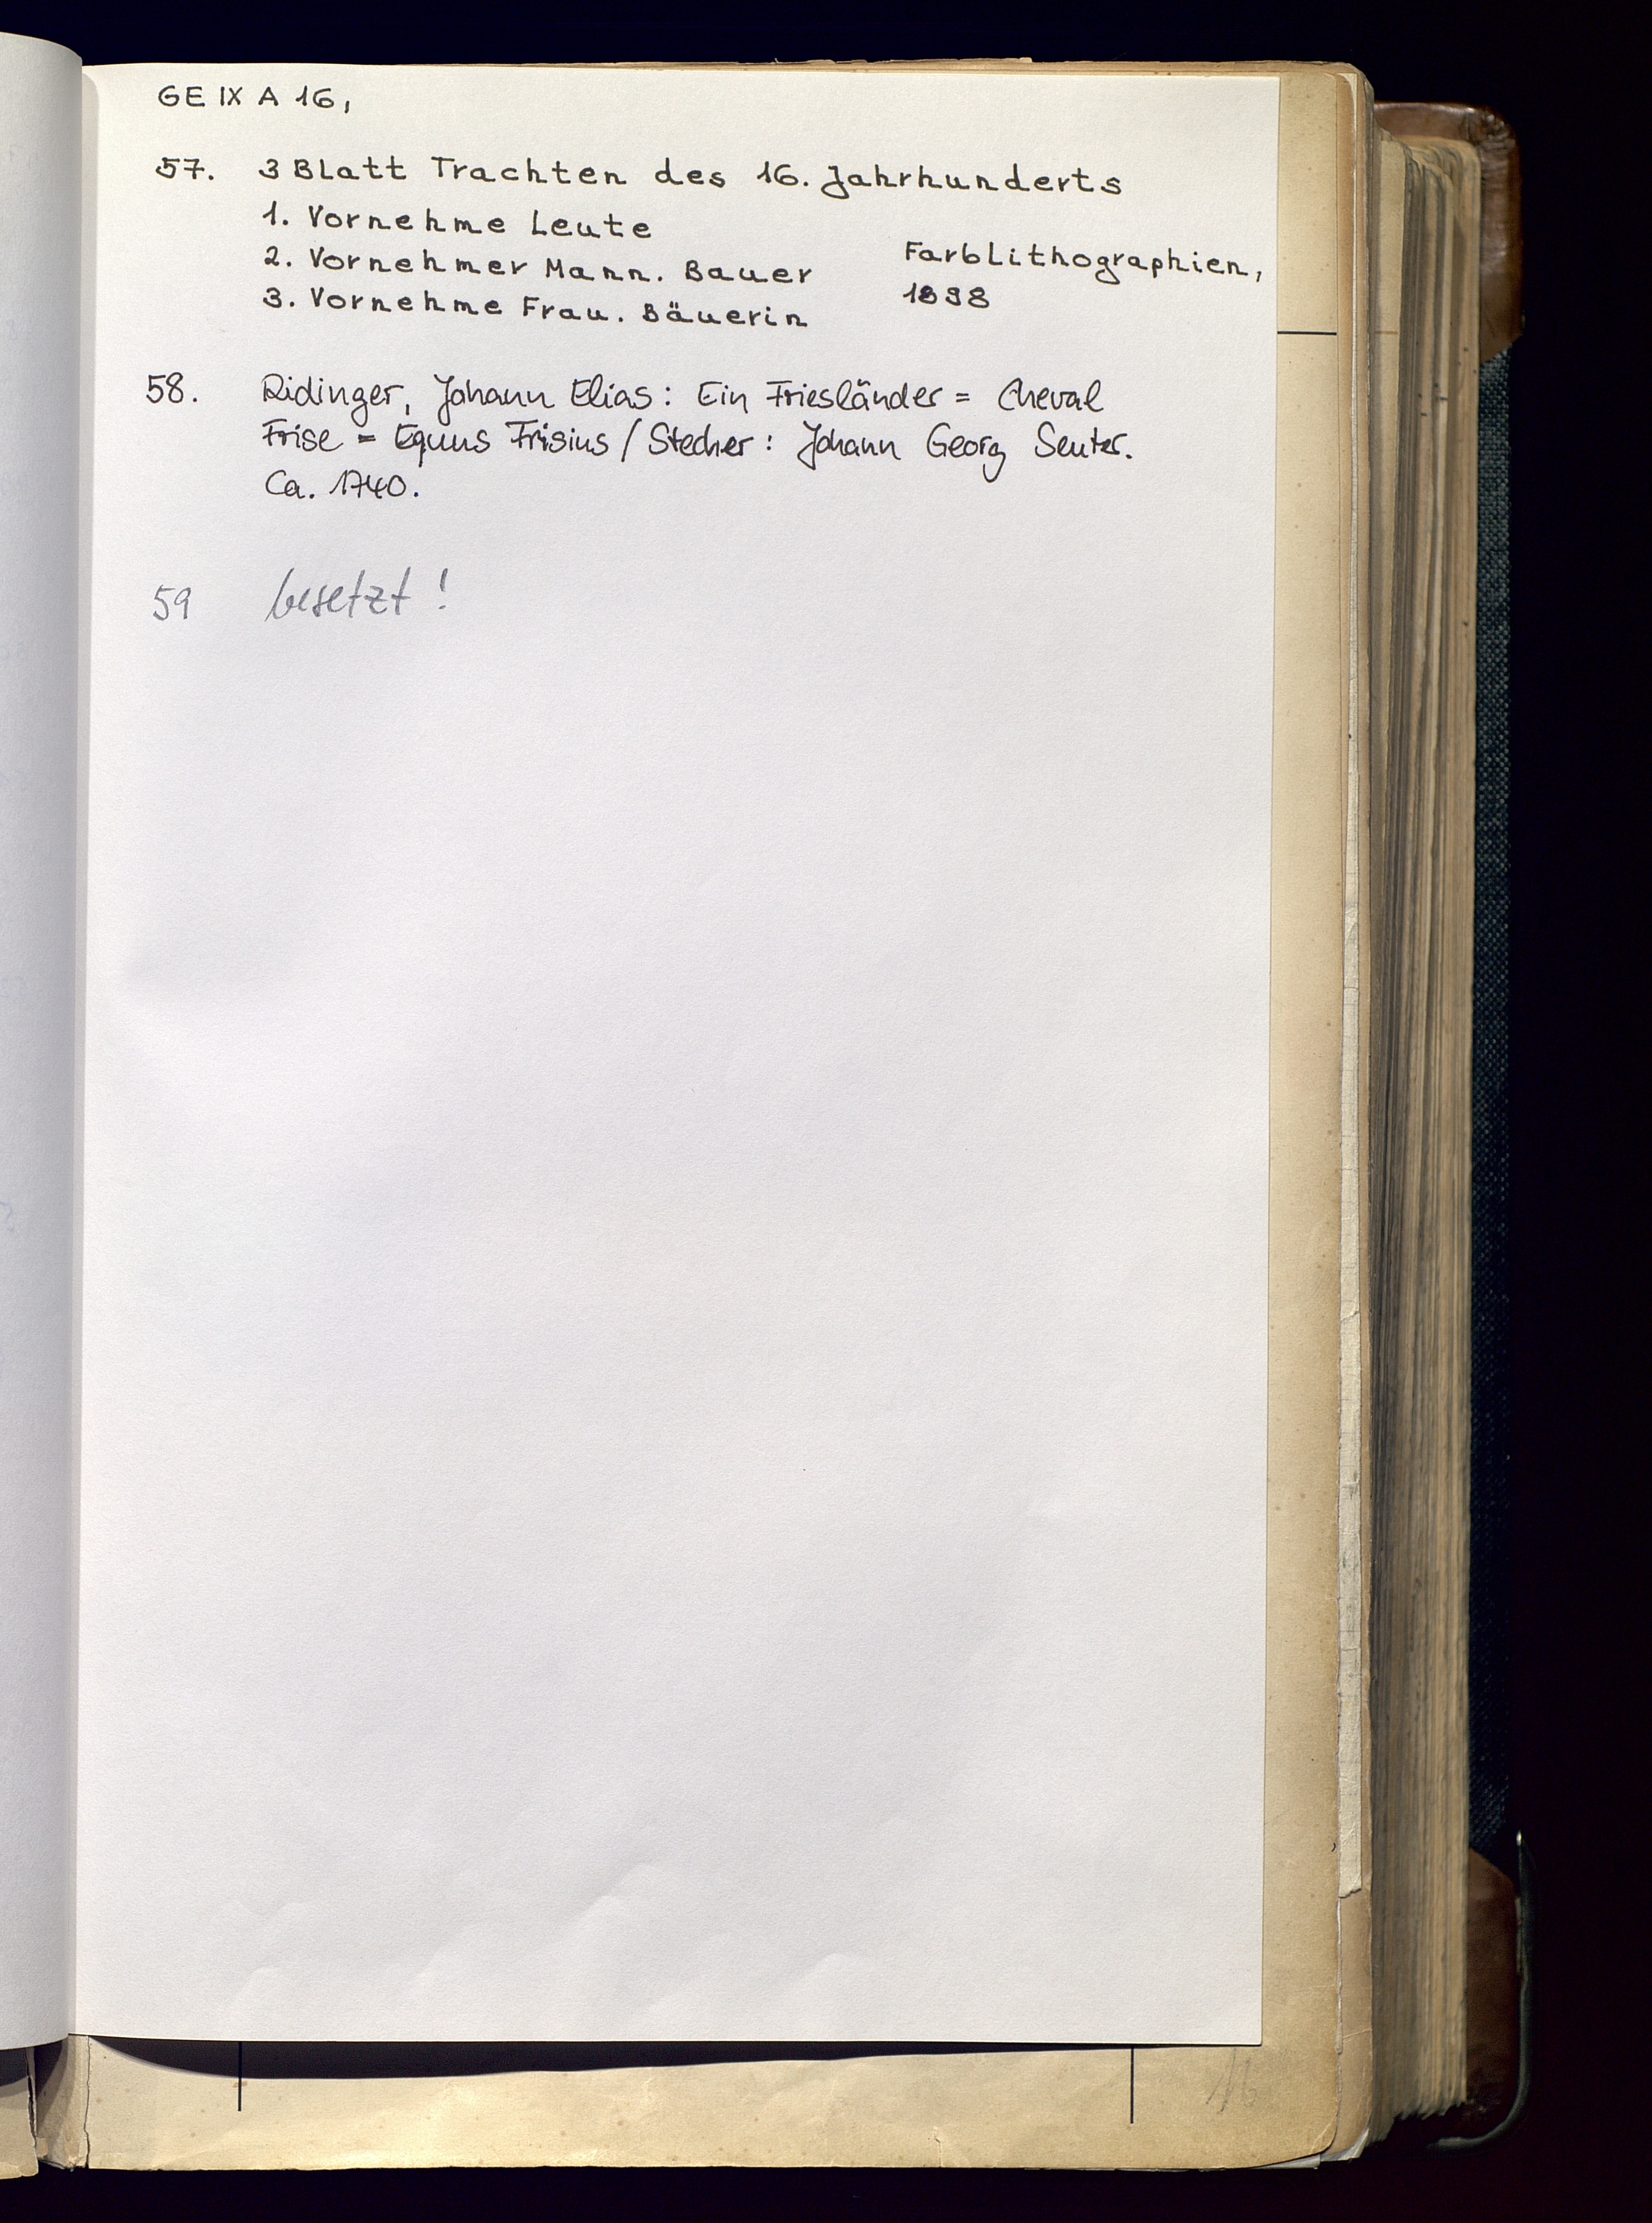 GE IX A 16,
57. 3 Blatt Trachten des 16. Jahrhunderts
1. Vornehme Leute
2. Vornehmer Mann. Bauer
3. Vornehme Frau. Bäuerin
Farblithographien,
1898
58. Ridinger, Johann Elias: Ein Friesländer = Cheval
Frise = Equus Frisius / Stecher: Johann Georg Seuter.
Ca. 1740.
59 besetzt!
16